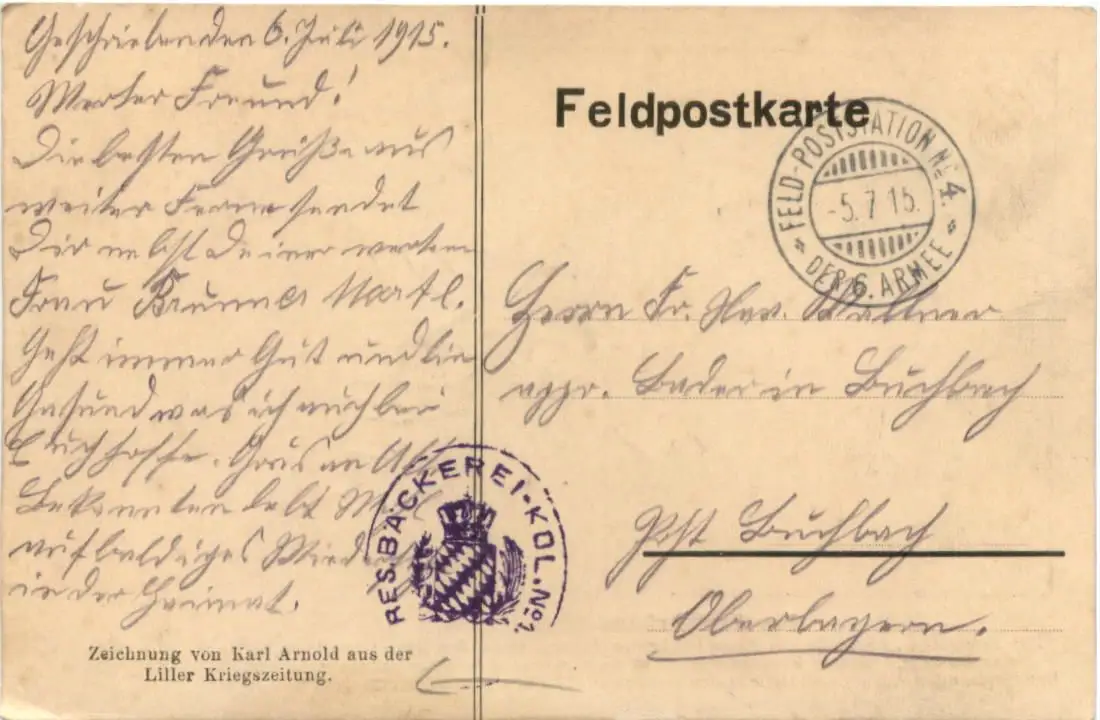 Geschrieben den 6. Juli 1915.
Werter Freund!
Die besten Grüße aus
weiter Ferne sendet
Dir nebst Deiner werten
Frau Brunner Martl.
Geht immer Gut und bin
Gesund was ich auch bei
Euch hoffe. Grüs an Alle
Bekannten lebt
auf baldiges
in der Heimat.
Zeichnung von Karl Arnold aus der
Liller Kriegszeitung.
RES. BÄCKEREI-KOL. No 1.
Feldpostkarte
FELD-POSTSTATION No 4.
-5.7.15.
DER 6. ARMEE
Herrn Fr. Xav.
appr. Bader in Buchbach
Post Buchbach
Oberbayern.